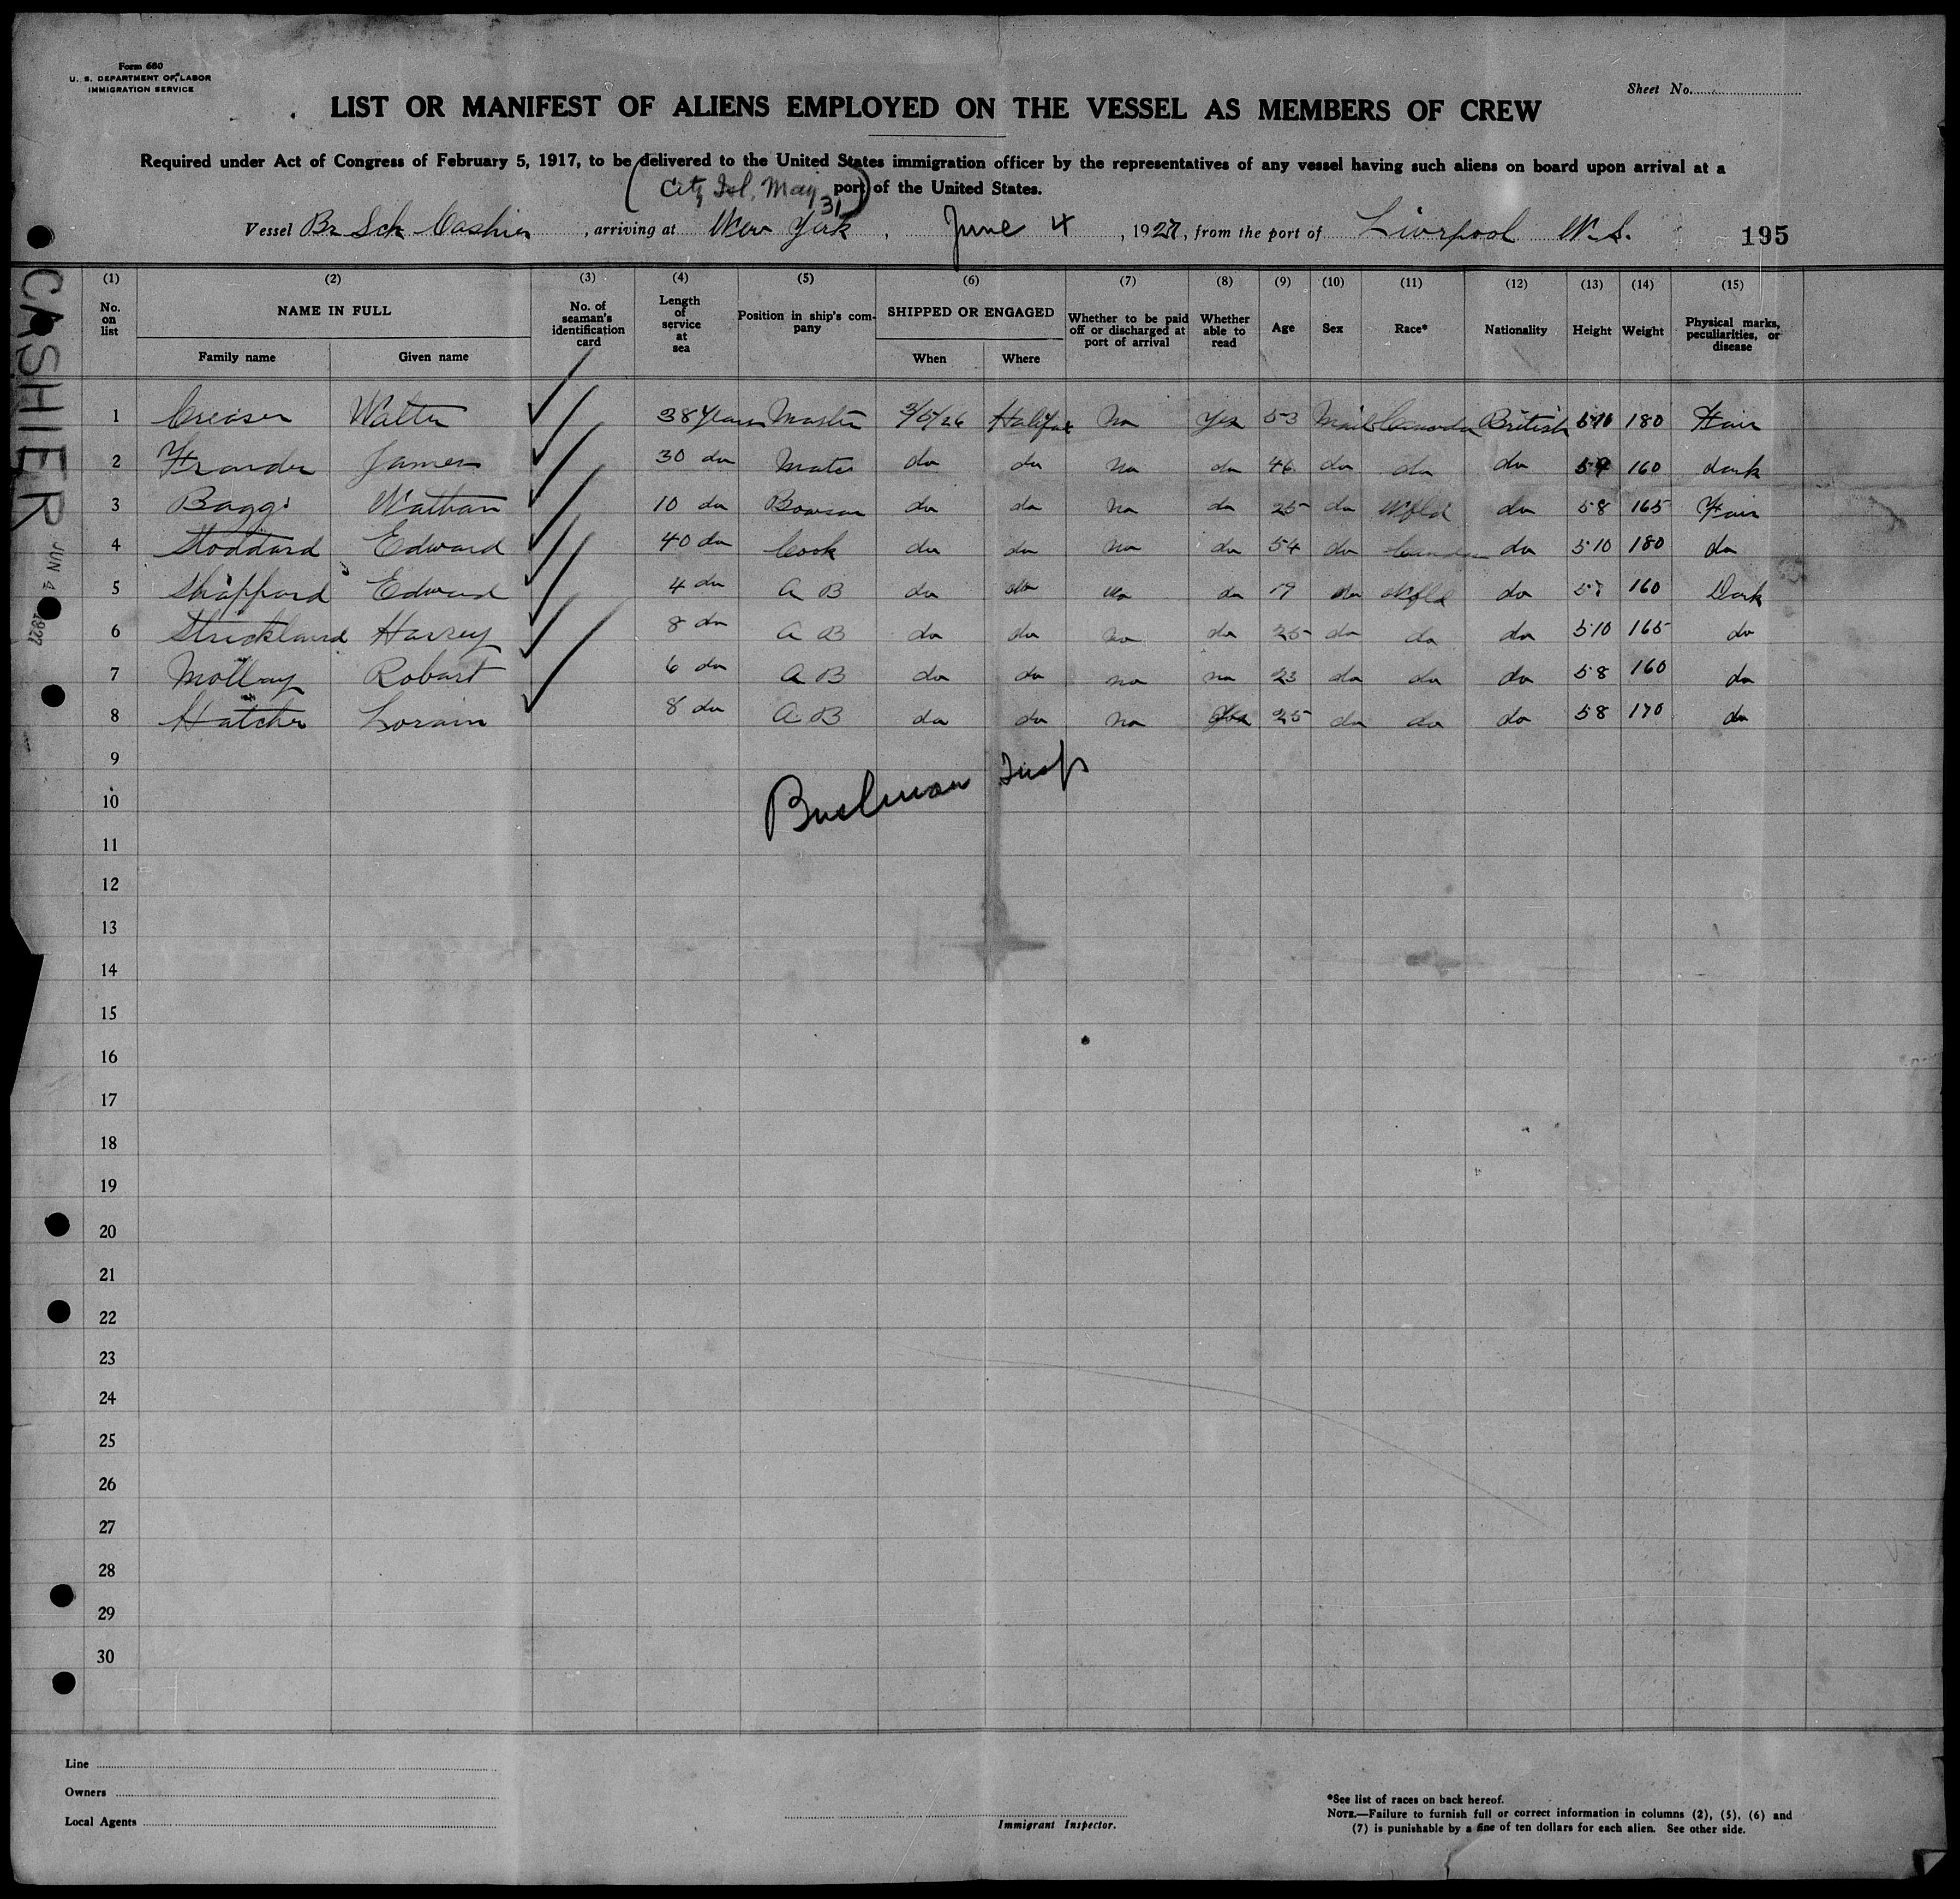 Form 680
U. S. DEPARTMENT OF LABOR
IMMIGRATION SERVICE
Sheet No.
LIST OR MANIFEST OF ALIENS EMPLOYED ON THE VESSEL AS MEMBERS OF CREW
Required under Act of Congress of February 5, 1917, to be delivered to the United States immigration officer by the representatives of any vessel having such aliens on board upon arrival at a
port of the United States.
(City Isl. May 31)
Vessel Br Sch Cashier, arriving at New York, June 4, 1927, from the port of Liverpool N.S. 195
CASHIER JUN 4 1927
(1) (2) (3) (4) (5) (6) (7) (8) (9) (10) (11) (12) (13) (14) (15)
No. on list NAME IN FULL Family name Given name No. of seaman's identification card Length of service at sea Position in ship's company SHIPPED OR ENGAGED When Where Whether to be paid off or discharged at port of arrival Whether able to read Age Sex Race* Nationality Height Weight Physical marks, peculiarities, or disease
1 Creaser Walter 38 years Master 3/5/26 Halifax No Yes 53 Male Canada British 5 10 180 Fair
2 James 30 do Mate do do no do 46 do do do 5 9 160 dark
3 Baggs Nathan 10 do Bowsan do do no do 25 do Nfld do 5 8 165 Fair
4 Stoddard Edward 40 do Cook do do no do 54 do Canada do 5 10 180 do
5 Shappard Edward 4 do A B do do no do 19 do Nfld do 5 160 Dark
6 Strickland Harvey 8 do A B do do no do 25 do do do 5 10 165 do
7 Molloy Robart 6 do A B do do no no 23 do do do 5 8 160 do
8 Hatcher Lorain 8 do A B do do no yes 25 do do do 5 8 170 do
9
10
11
12
13
14
15
16
17
18
19
20
21
22
23
24
25
26
27
28
29
30
Insp
Line
Owners
Local Agents
Immigrant Inspector.
*See list of races on back hereof.
NOTE.—Failure to furnish full or correct information in columns (2), (5), (6) and
(7) is punishable by a fine of ten dollars for each alien. See other side.